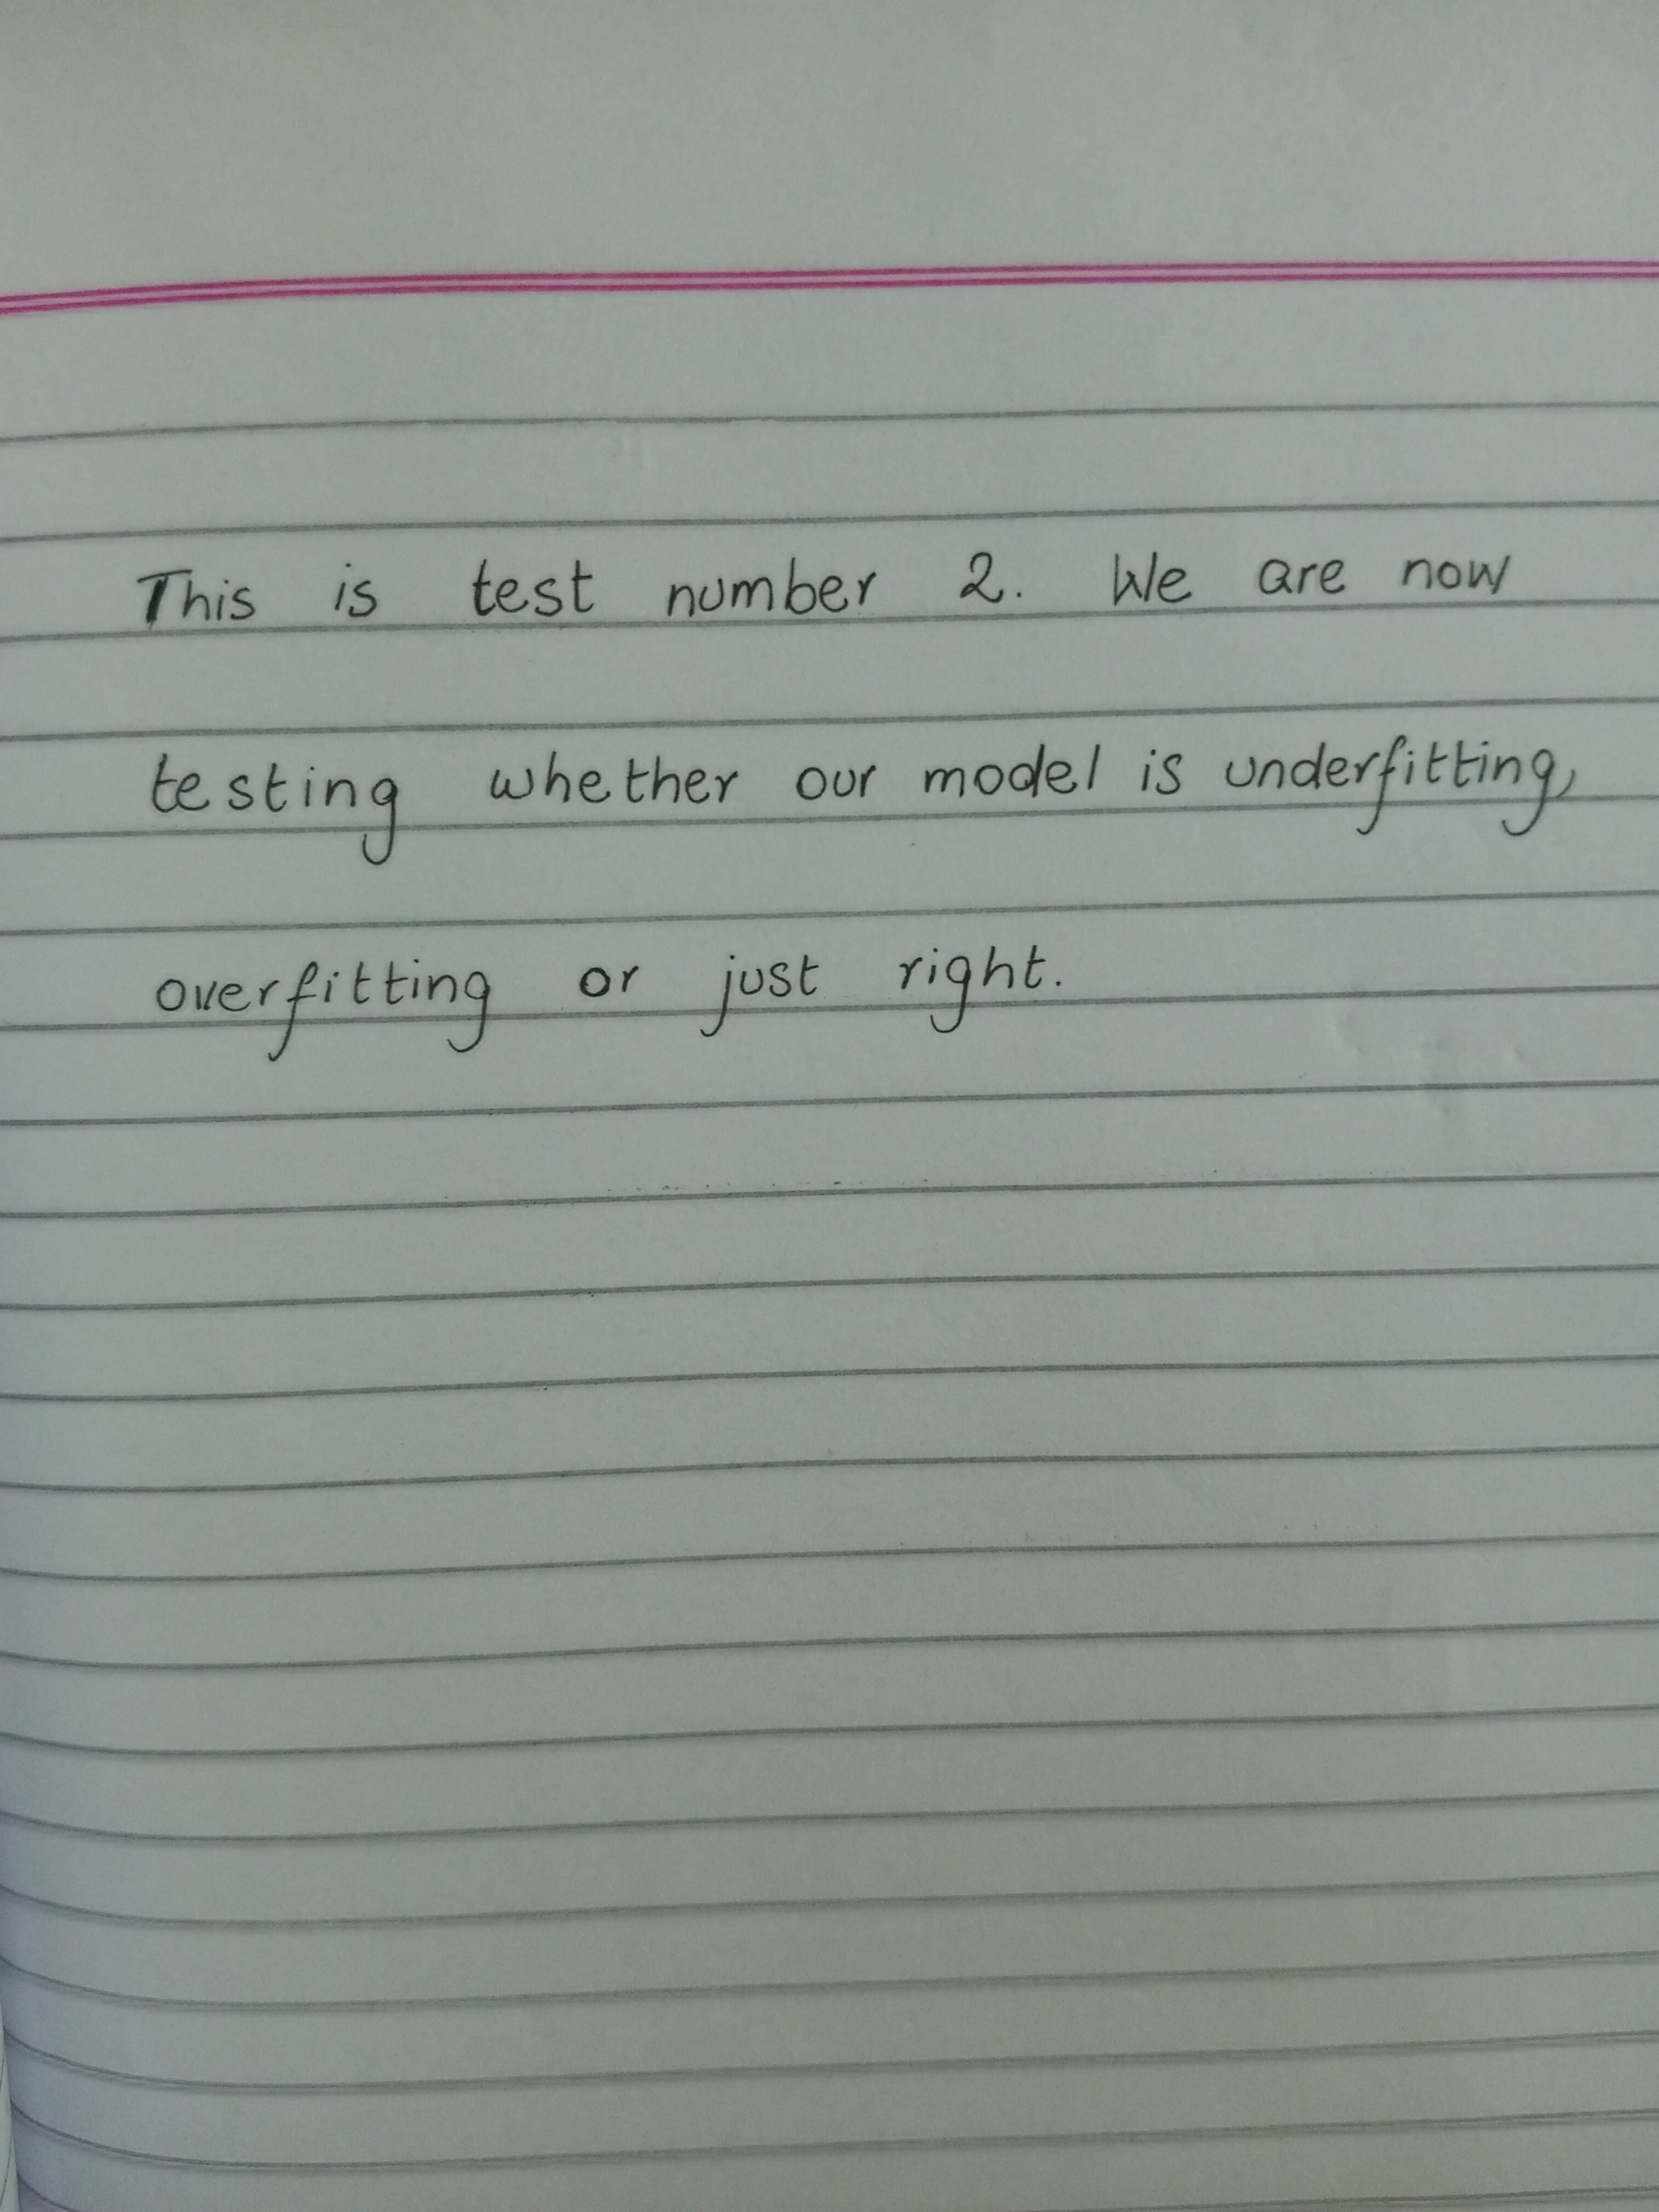 This is test number 2. We are now
testing whether our model is underfitting,
overfitting or just right.